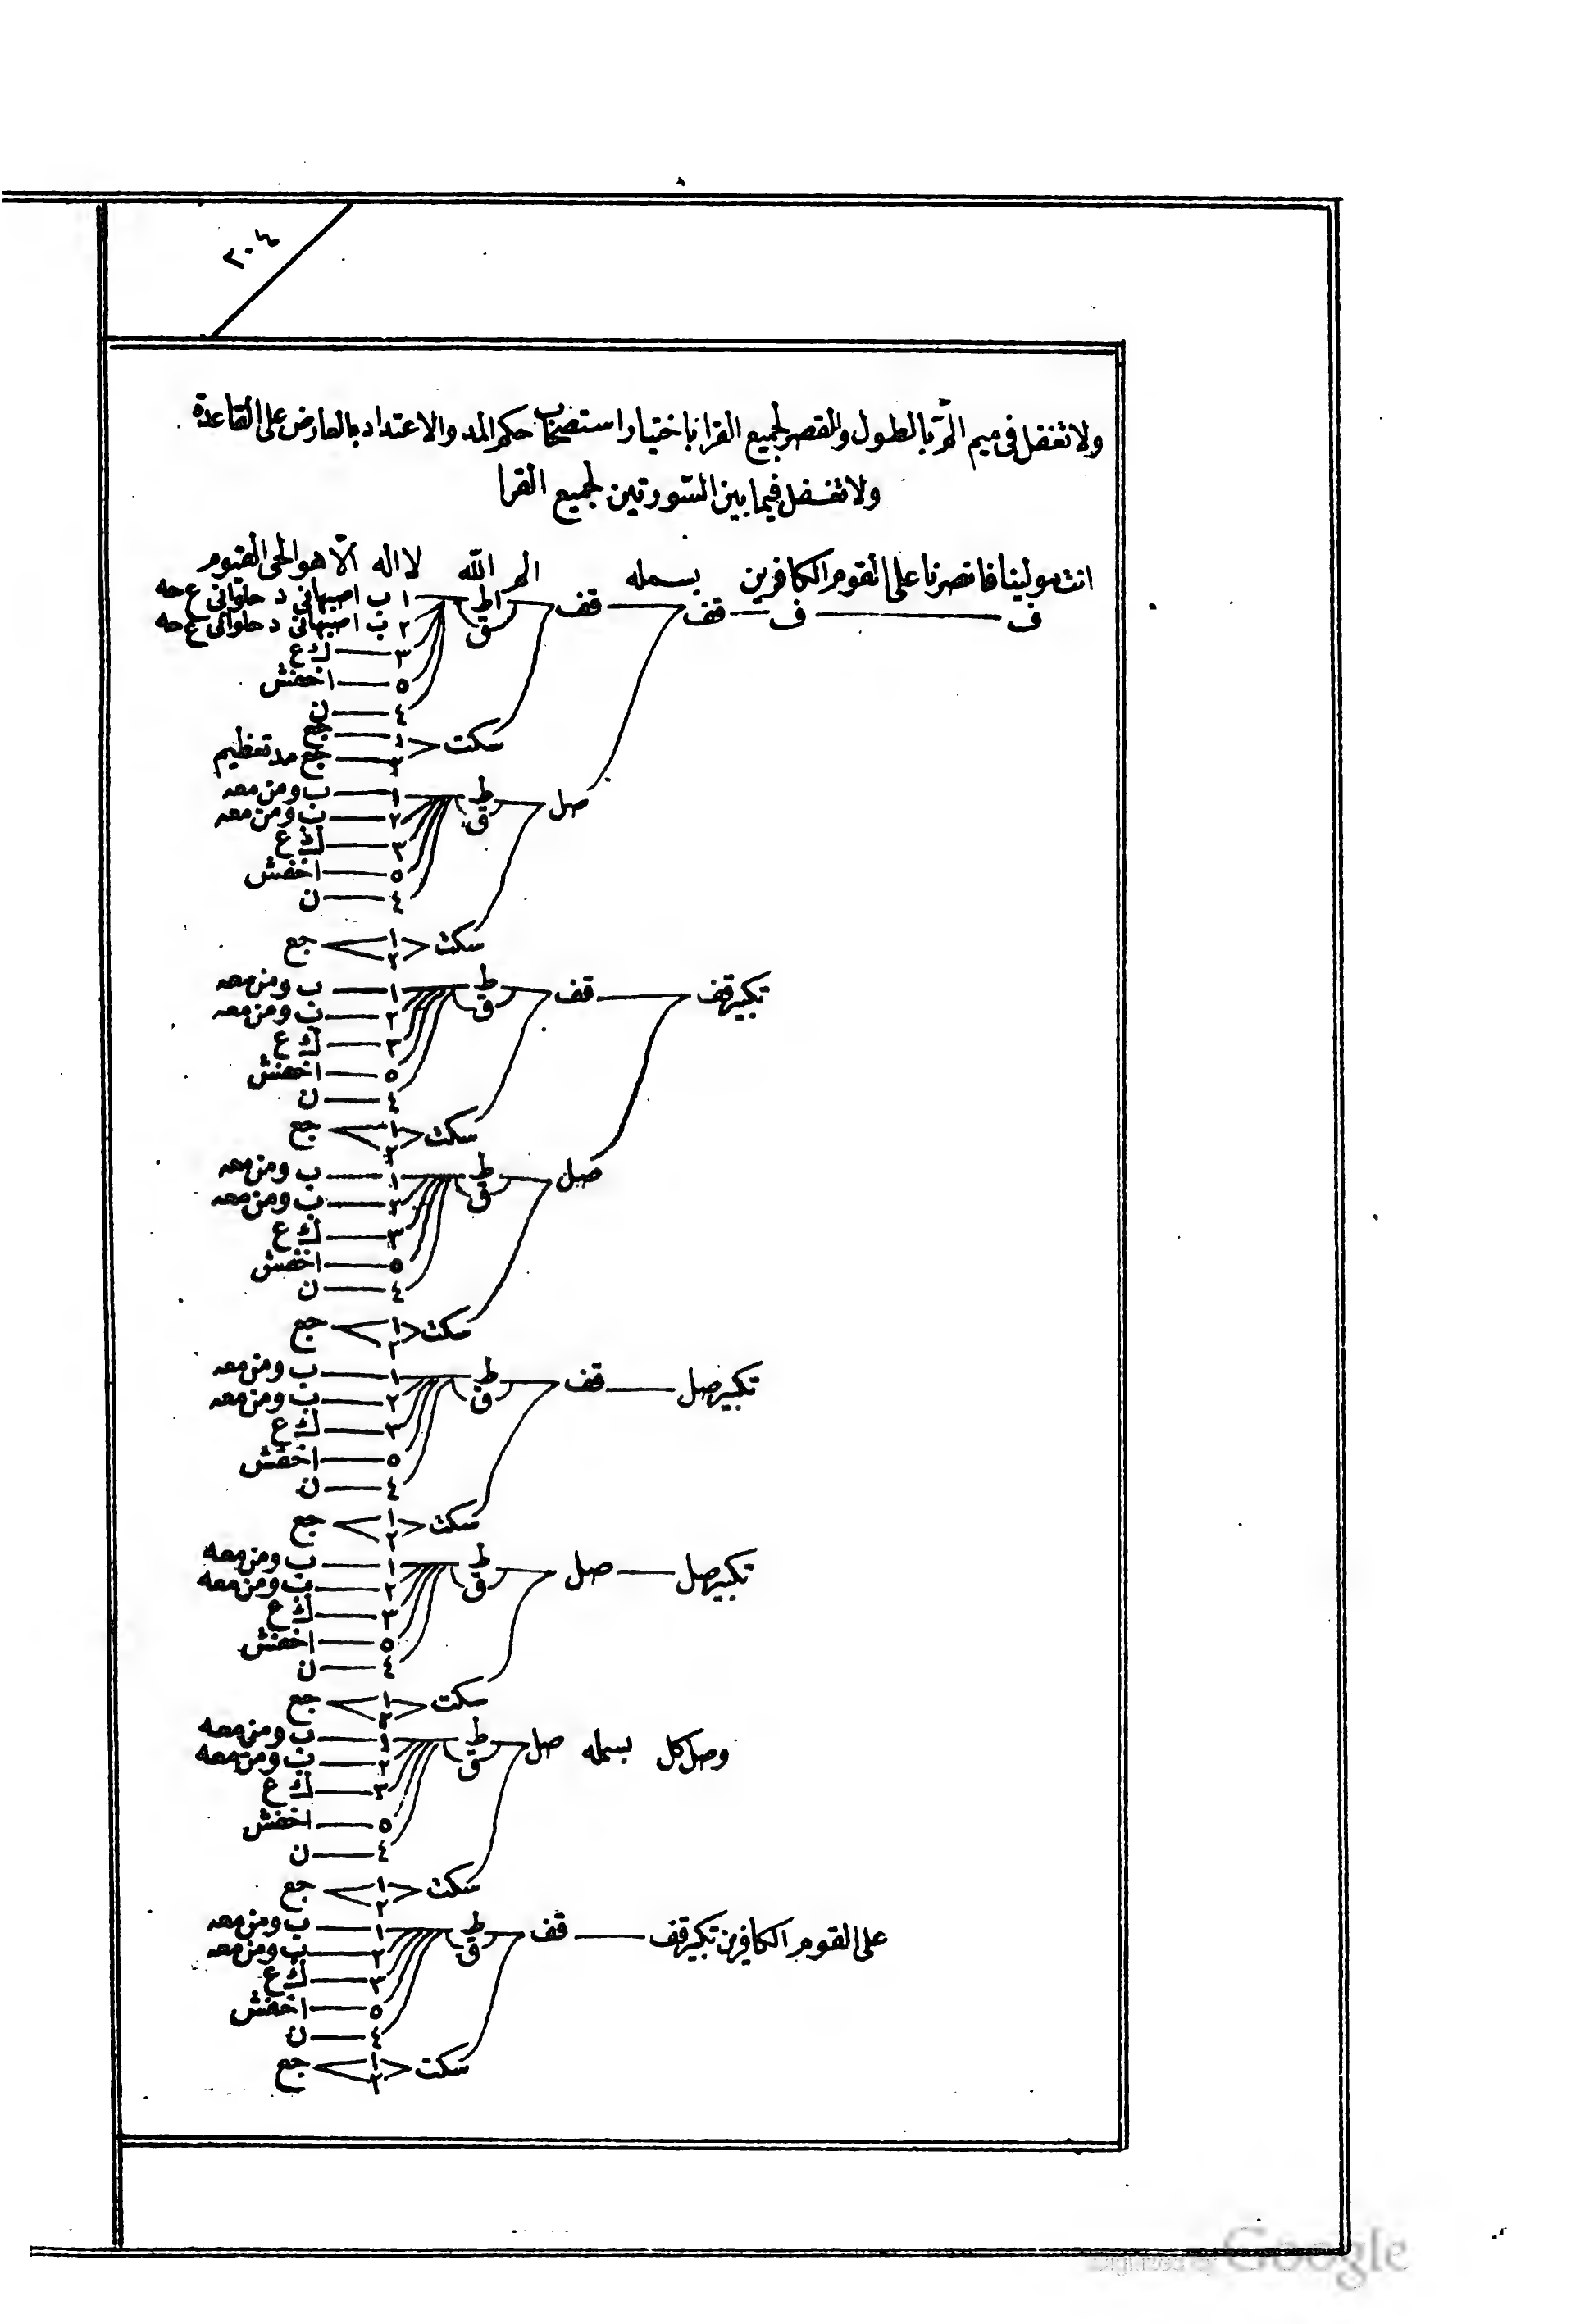 ٢٠٤
ولا تغفل فى ميم الم بالطول والقصر لجميع القرا باختيار استصحاب حكم المد والاعتداد بالعارض على القاعدة
ولا تغفل فيما بين السورتين لجميع القرا
انت مولينا فانصرنا على القوم الكافرين بسمله الم الله لا اله الّا هو الحى القيوم
ف ف قف قف اط ١ ب اصبهانى د حلوانى ع حه
ق ٢ ب اصبهانى د حلوانى ع حه
٣ ك ع
٥ اخفش
٤ ن
سكت ١ جع
٢ جع مد تعظيم
صل ط ١ ب ومن معه
ق ٢ ب ومن معه
٣ ك ع
٥ اخفش
٤ ن
سكت ١ ٢ جع
تكبير قف قف ط ١ ب ومن معه
ق ٢ ب ومن معه
٣ ك ع
٥ اخفش
٤ ن
سكت ١ ٢ جع
صل ط ١ ب ومن معه
ق ٢ ب ومن معه
٣ ك ع
٥ اخفش
٤ ن
سكت ١ ٢ جع
تكبير صل قف ط ١ ب ومن معه
ق ٢ ب ومن معه
٣ ك ع
٥ اخفش
٤ ن
سكت ١ ٢ جع
تكبير صل صل ط ١ ب ومن معه
ق ٢ ب ومن معه
٣ ك ع
٥ اخفش
٤ ن
سكت ١ ٢ جع
وصل كل بسمله صل ط ١ ب ومن معه
ق ٢ ب ومن معه
٣ ك ع
٥ اخفش
٤ ن
سكت ١ ٢ جع
على القوم الكافرين تكبير قف قف ط ١ ب ومن معه
ق ٢ ب ومن معه
٣ ك ع
٥ اخفش
٤ ن
سكت ١ ٢ جع
Digitized by Google